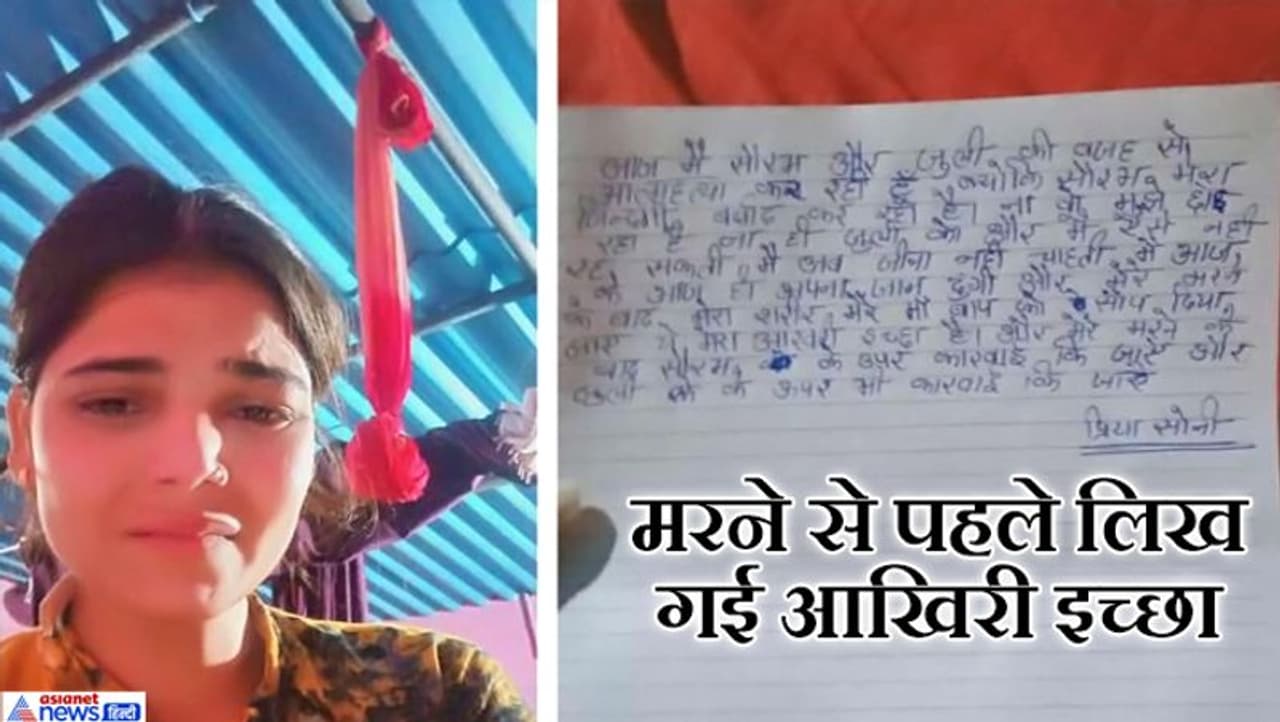 आज मैं सौरभ और जुली की वजह से
आत्महत्या कर रही हूँ क्योकि सौरभ मेरा
जिन्दगी बर्बाद कर रहा है। ना वो मुझे छोड़
रहा है ना ही जुली को और मैं ऐसे नही
रह सकती मै अब जीना नही चाहती मै आज
के आज ही अपना जान दूंगी और मेरे मरने
के बाद मेरा शरीर मेरे माँ बाप को सौप दिया
जाए ये मेरा आखरी इच्छा है। और मेरे मरने के
बाद सौरभ के उपर कारवाई कि जाए और
जुली के ऊपर भी कारवाई कि जाए
प्रिया सोनी
मरने से पहले लिख
गई आखिरी इच्छा
asianet
news हिन्दी